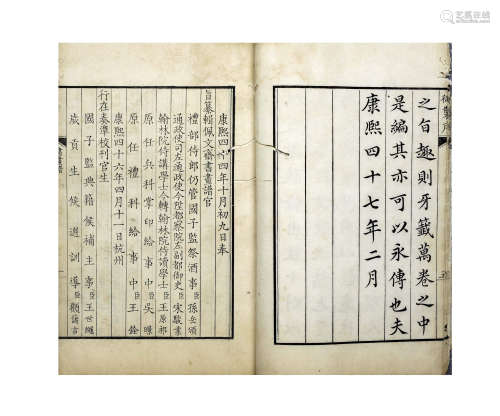 之旨趣則牙籤萬卷之中
是編其亦可以永傳也夫
康熙四十七年二月
康熙四十四年十月初九日奉
旨纂輯佩文齋書畫譜官
禮部侍郎仍管國子監祭酒事臣孫岳頒
通政使司左通政使今陞都察院左副都御史臣宋駿業
翰林院侍講學士今轉翰林院侍讀學士臣王原祁
原任兵科掌印給事中臣吳暻
原任禮科給事中臣王銓
康熙四十六年四月十一日杭州
行在奏準校刊官生
國子監典籍候補主事臣王世繩
歲貢生候選訓導臣顧